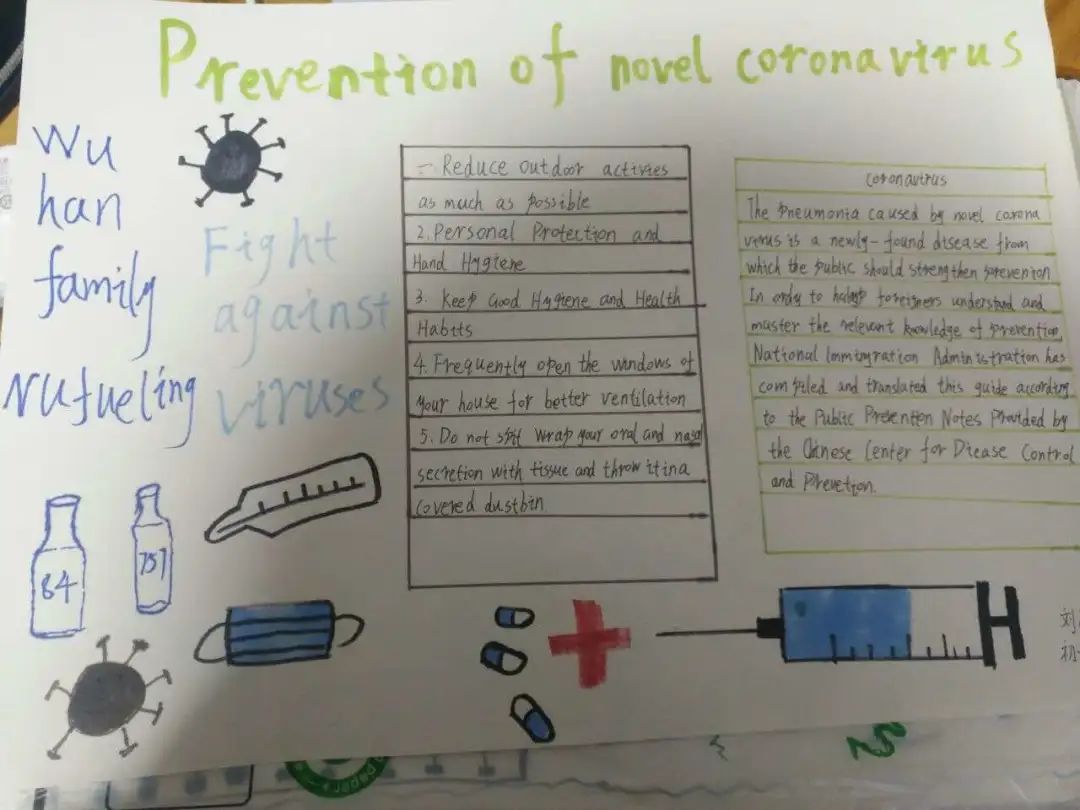 Prevention of novel coronavirus
Wu
han
family
nufueling
Fight
against
viruses
一. Reduce outdoor activies
as much as possible
2. Personal Protection and
Hand Hygiene
3. Keep Good Hygiene and Health
Habits
4. Frequently open the windows of
your house for better ventilation
5. Do not spit wrap your oral and nasal
secretion with tissue and throw it in a
covered dustbin
coronavirus
The pneumonia caused by novel corona
virus is a newly-found disease from
which the public should strengthen prevenion
In order to foreigners understand and
master the relevant knowledge of prevention,
National Immigration Administration has
compiled and translated this guide according
to the Public Prevention Notes Provided by
the Chinese Center for Diease Control
and Prevetion.
84
757
刘
初